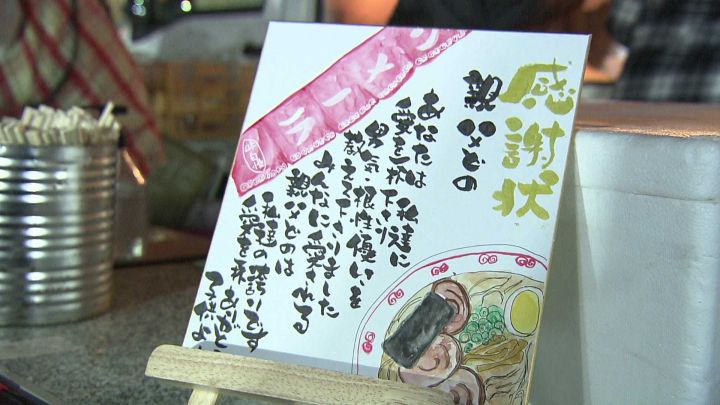 感謝状
親父どの
あなたは私達に
愛を一杯下さり
男気・根性・優しさを
教えて下さりました
みんなに愛される
親父どのは
私達の誇りです
愛を
ありがとう
子供
ラーメン